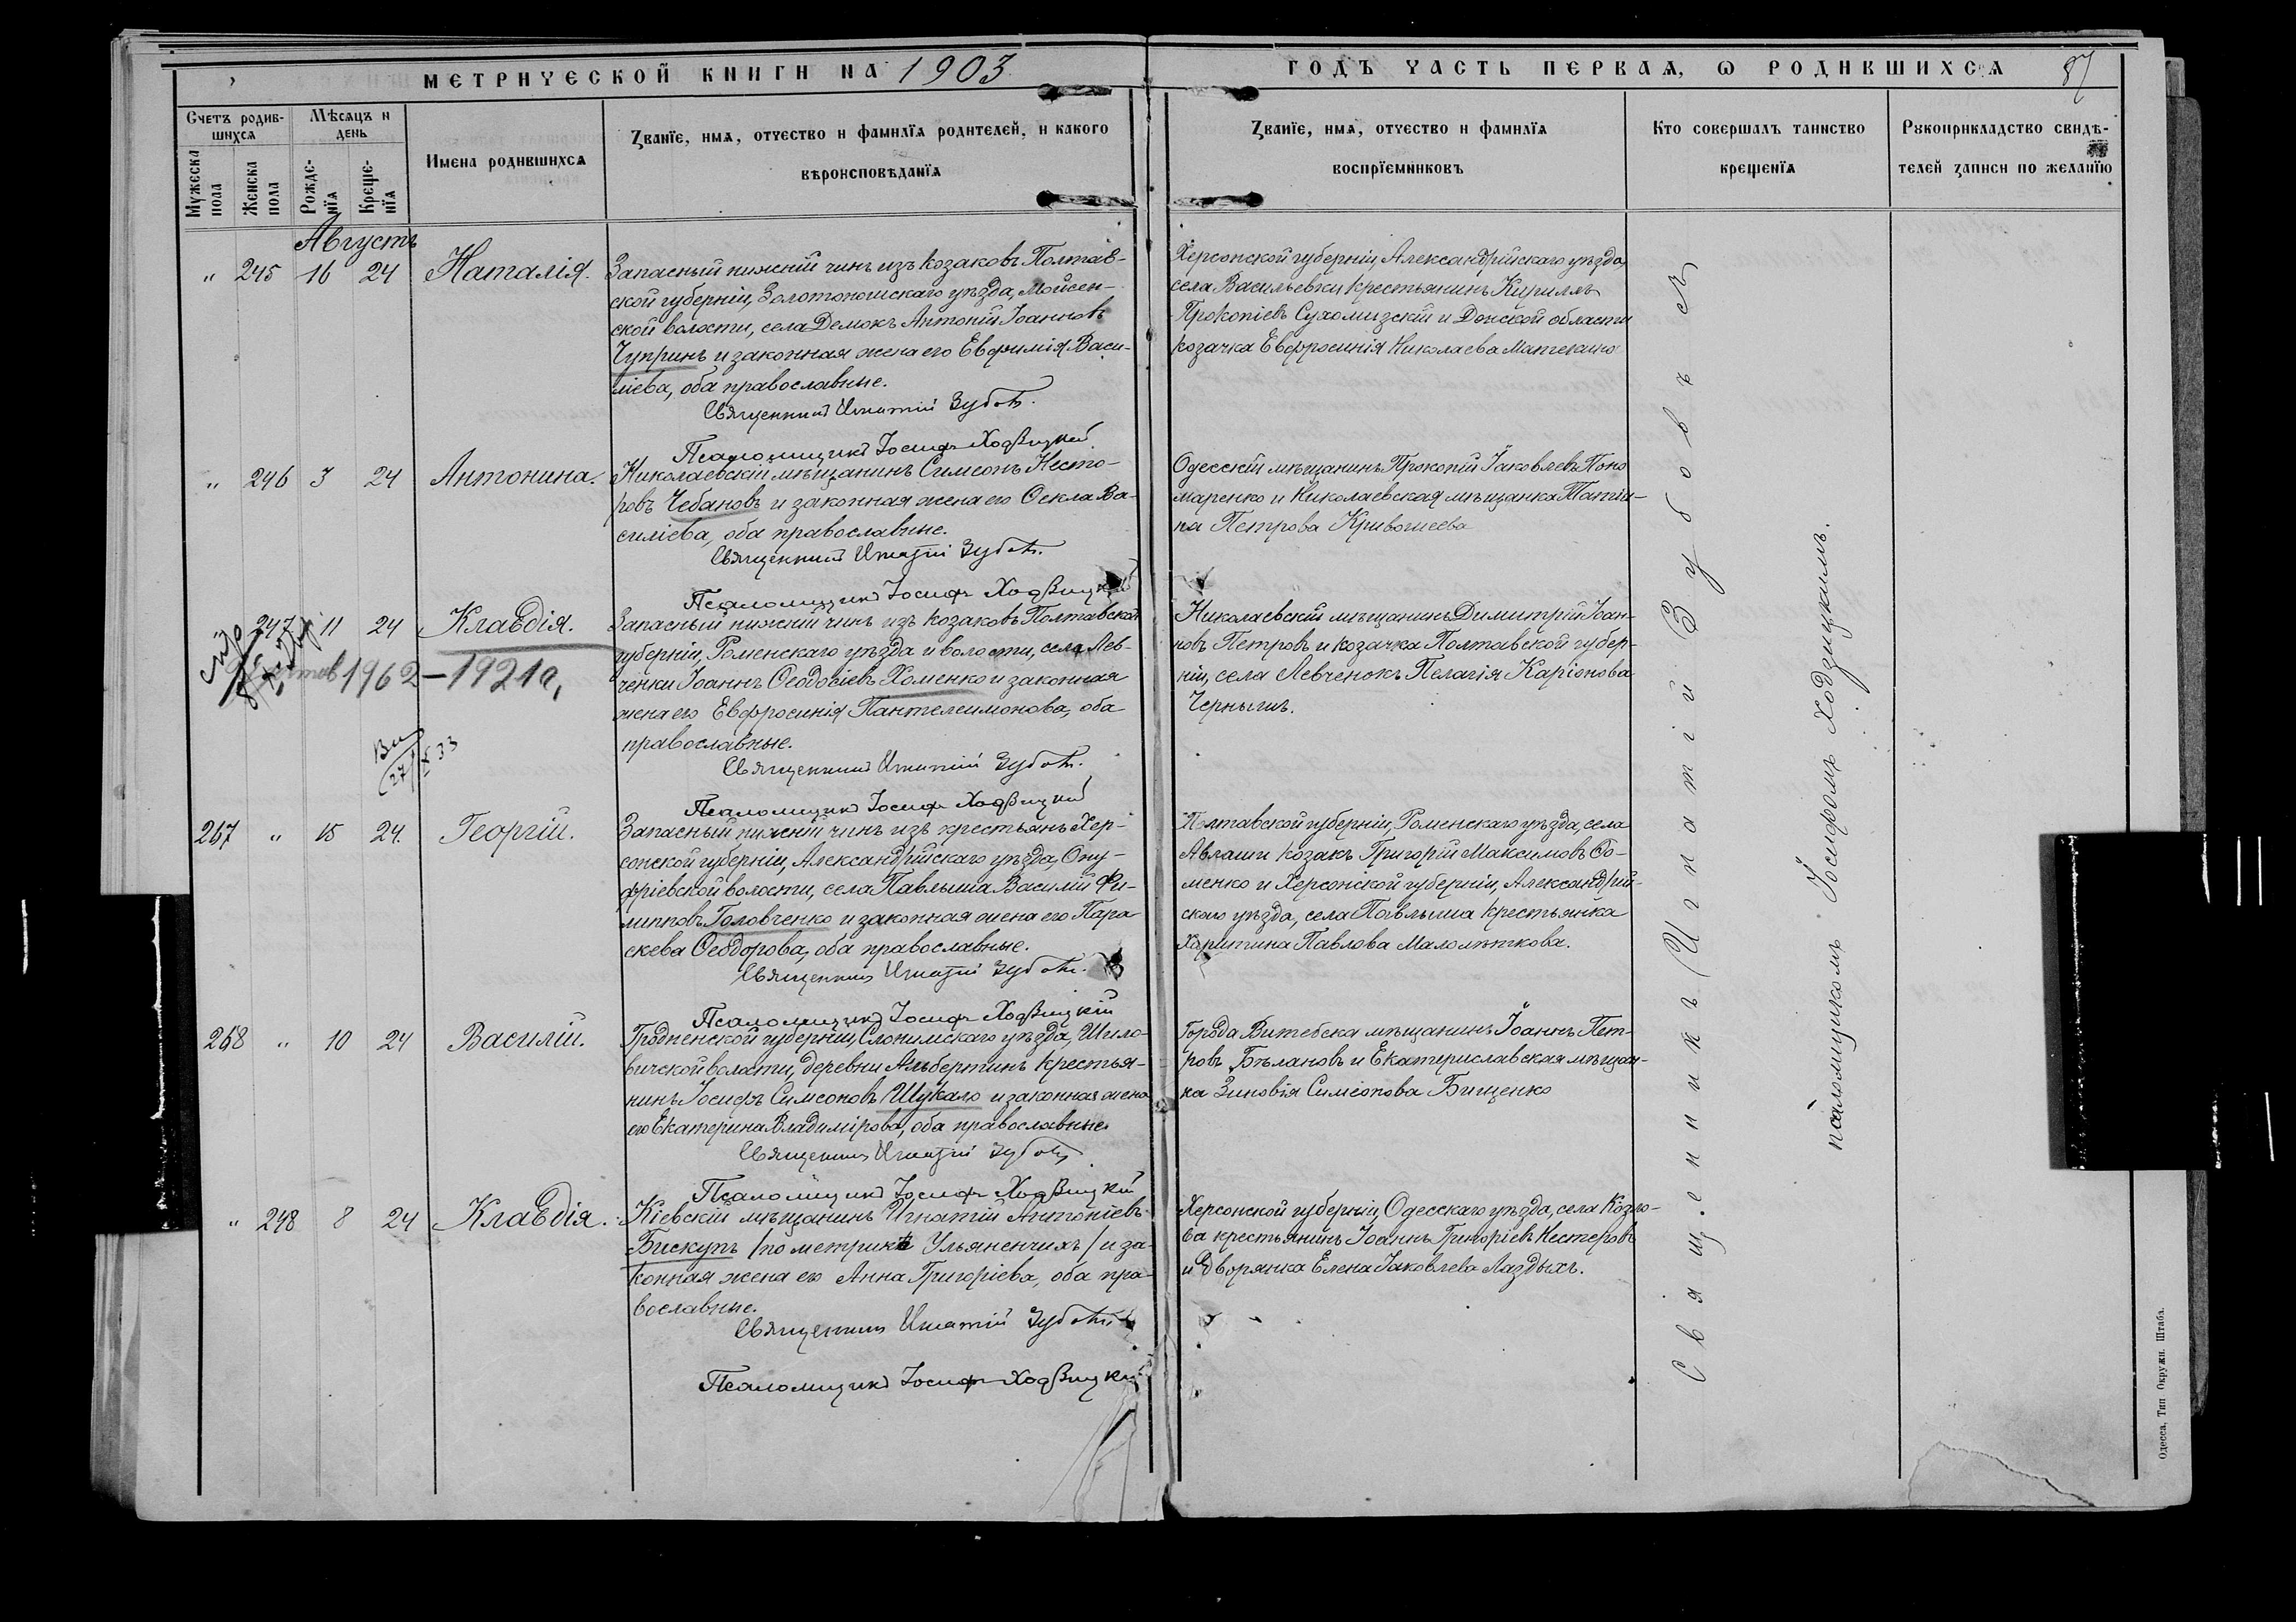 МЕТРИЧЕСКОЙ КНИГИ НА 1903
ГОДЪ ЧАСТЬ ПЕРВАЯ, Ѡ РОДИВШИХСЯ 87
Счетъ родив-
шихся
Мѣсяцъ и
день
Мужеска
пола
Женска
пола
Рожде-
нїя
Креще-
нїя
Имена родившихся
Званїе, имя, отчество и фамилїя родителей, и какого
вѣроисповѣданїя
Званїе, имя, отчество и фамилїя
воспрїемниковъ
Кто совершалъ таинство
крещенїя
Рукоприкладство свидѣ-
телей записи по желанїю
Августъ
" 245 16 24 Наталія.
Запасный нижній чинъ изъ козаковъ Полтав-
ской губерніи, Золотоношскаго уѣзда, Мойсен-
ской волости, села Демокъ Антоній Іоанновъ
Чупринъ и законная жена его Евѳимія Васи-
ліева, оба православные.
Священникъ Игнатій Зубовъ.
Псаломщикъ Іосифъ Ходзицкій
Херсонской губерніи, Александрійскаго уѣзда,
села Васильевки крестьянинъ Кириллъ
Прокопіевъ и Донской области
козачка Евфросинія Николаева
" 246 3 24 Антонина.
Николаевскій мѣщанинъ Симеонъ Несто-
ровъ Чебановъ и законная жена его Ѳекла Ва-
силіева, оба православные.
Священникъ Игнатій Зубовъ.
Псаломщикъ Іосифъ Ходзицкій
Одесскій мѣщанинъ Прокопій Іаковлевъ Поно
маренко и Николаевская мѣщанка Татіа-
на Петрова Кривошеева
" 247 11 24 Клавдія.
1962-1921г,
27 X 33
Запасный нижній чинъ изъ козаковъ Полтавской
губерніи, Роменскаго уѣзда и волости, села Лев-
ченки Іоаннъ Ѳеодосіевъ Хоменко и законная
жена его Евфросинія Пантелеимонова, оба
православные.
Священникъ Игнатій Зубовъ.
Псаломщикъ Іосифъ Ходзицкій
Николаевскій мѣщанинъ Димитрій Іоан-
новъ Петровъ и козачка Полтавской губер-
ніи, села Левченокъ Пелагія Каріонова
267 " 15 24. Георгій.
Запасный нижній чинъ изъ крестьянъ Хер-
сонской губерніи, Александрійскаго уѣзда, Ону-
фріевской волости, села Павлыша Василій Фи-
липповъ Головченко и законная жена его Пара
скева Ѳеодорова, оба православные.
Священникъ Игнатій Зубовъ.
Псаломщикъ Іосифъ Ходзицкій
Полтавской губерніи, Роменскаго уѣзда, села
козакъ Григорій Максимовъ
менко и Херсонской губерніи, Александрій-
скаго уѣзда, села Павлыша крестьянка
Харитина Павлова
268 " 10 24 Василій.
Гродненской губерніи, Слонимскаго уѣзда, Шило-
вичской волости, деревни Альбертинъ крестья-
нинъ Іосифъ Симеоновъ Шукало и законная жена
его Екатерина Владимірова, оба православные.
Священникъ Игнатій Зубовъ
Псаломщикъ Іосифъ Ходзицкій
Города Витебска мѣщанинъ Іоаннъ Пет-
ровъ Бѣлановъ и Екатериславская мѣщан-
ка Зиновія Симеонова Бищенко
" 248 8 24 Клавдія.
Кіевскій мѣщанинъ Игнатій Антоніевъ
Бискупъ /по метрикѣ Ульяненчихъ/ и за-
конная жена его Анна Григоріева, оба пра-
вославные.
Священникъ Игнатій Зубовъ
Псаломщикъ Іосифъ Ходзицкій
Херсонской губерніи, Одесскаго уѣзда, села Козло-
ва крестьянинъ Іоаннъ Григоріевъ Нестеровъ
и дворянка Елена Іаковлева
Священникъ Игнатій Зубовъ съ
псаломщикомъ Іосифомъ Ходзицкимъ.
Одесса, Тип Окружн. Штаба.